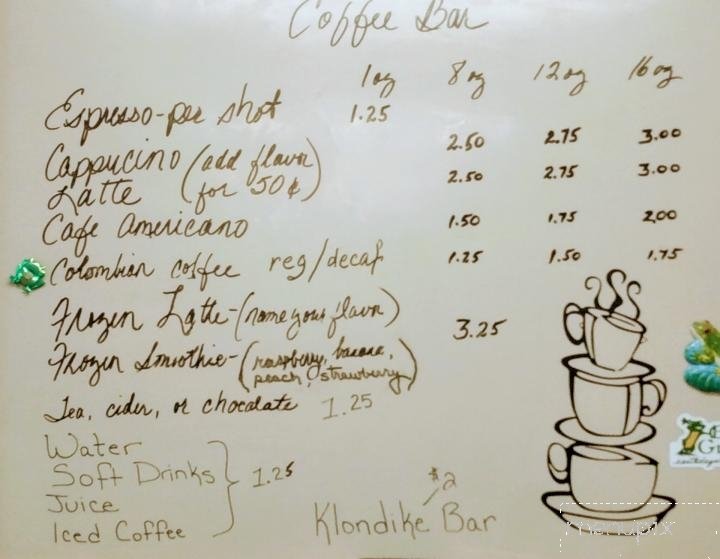 Coffee Bar
1oz 8oz 12oz 16oz
Espresso-per shot 1.25
Cappucino (add flavor 2.50 2.75 3.00
Latte for 50¢) 2.50 2.75 3.00
Cafe Americano 1.50 1.75 2.00
Colombian coffee reg/decaf 1.25 1.50 1.75
Frozen Latte-(name your flavor) 3.25
Frozen Smoothie-(raspberry, banana,
peach, strawberry)
Tea, cider, or chocolate 1.25
Water
Soft Drinks } 1.25
Juice
Iced Coffee
$2
Klondike Bar
menupix